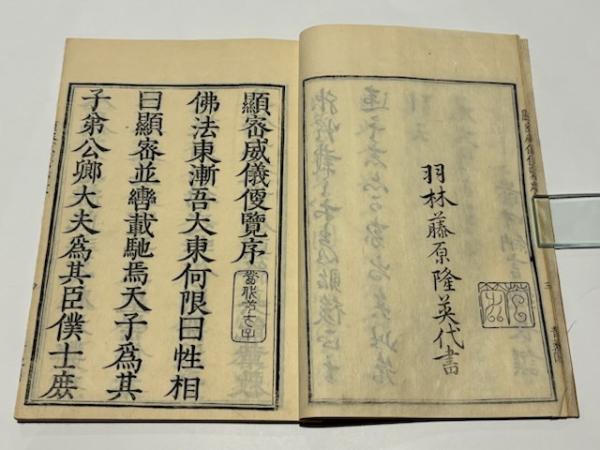 羽林藤原隆英代書
顯密威儀便覽序
佛法東漸吾大東何限曰性相
曰顯密並轡載馳焉天子爲其
子弟公卿大夫爲其臣僕士庶